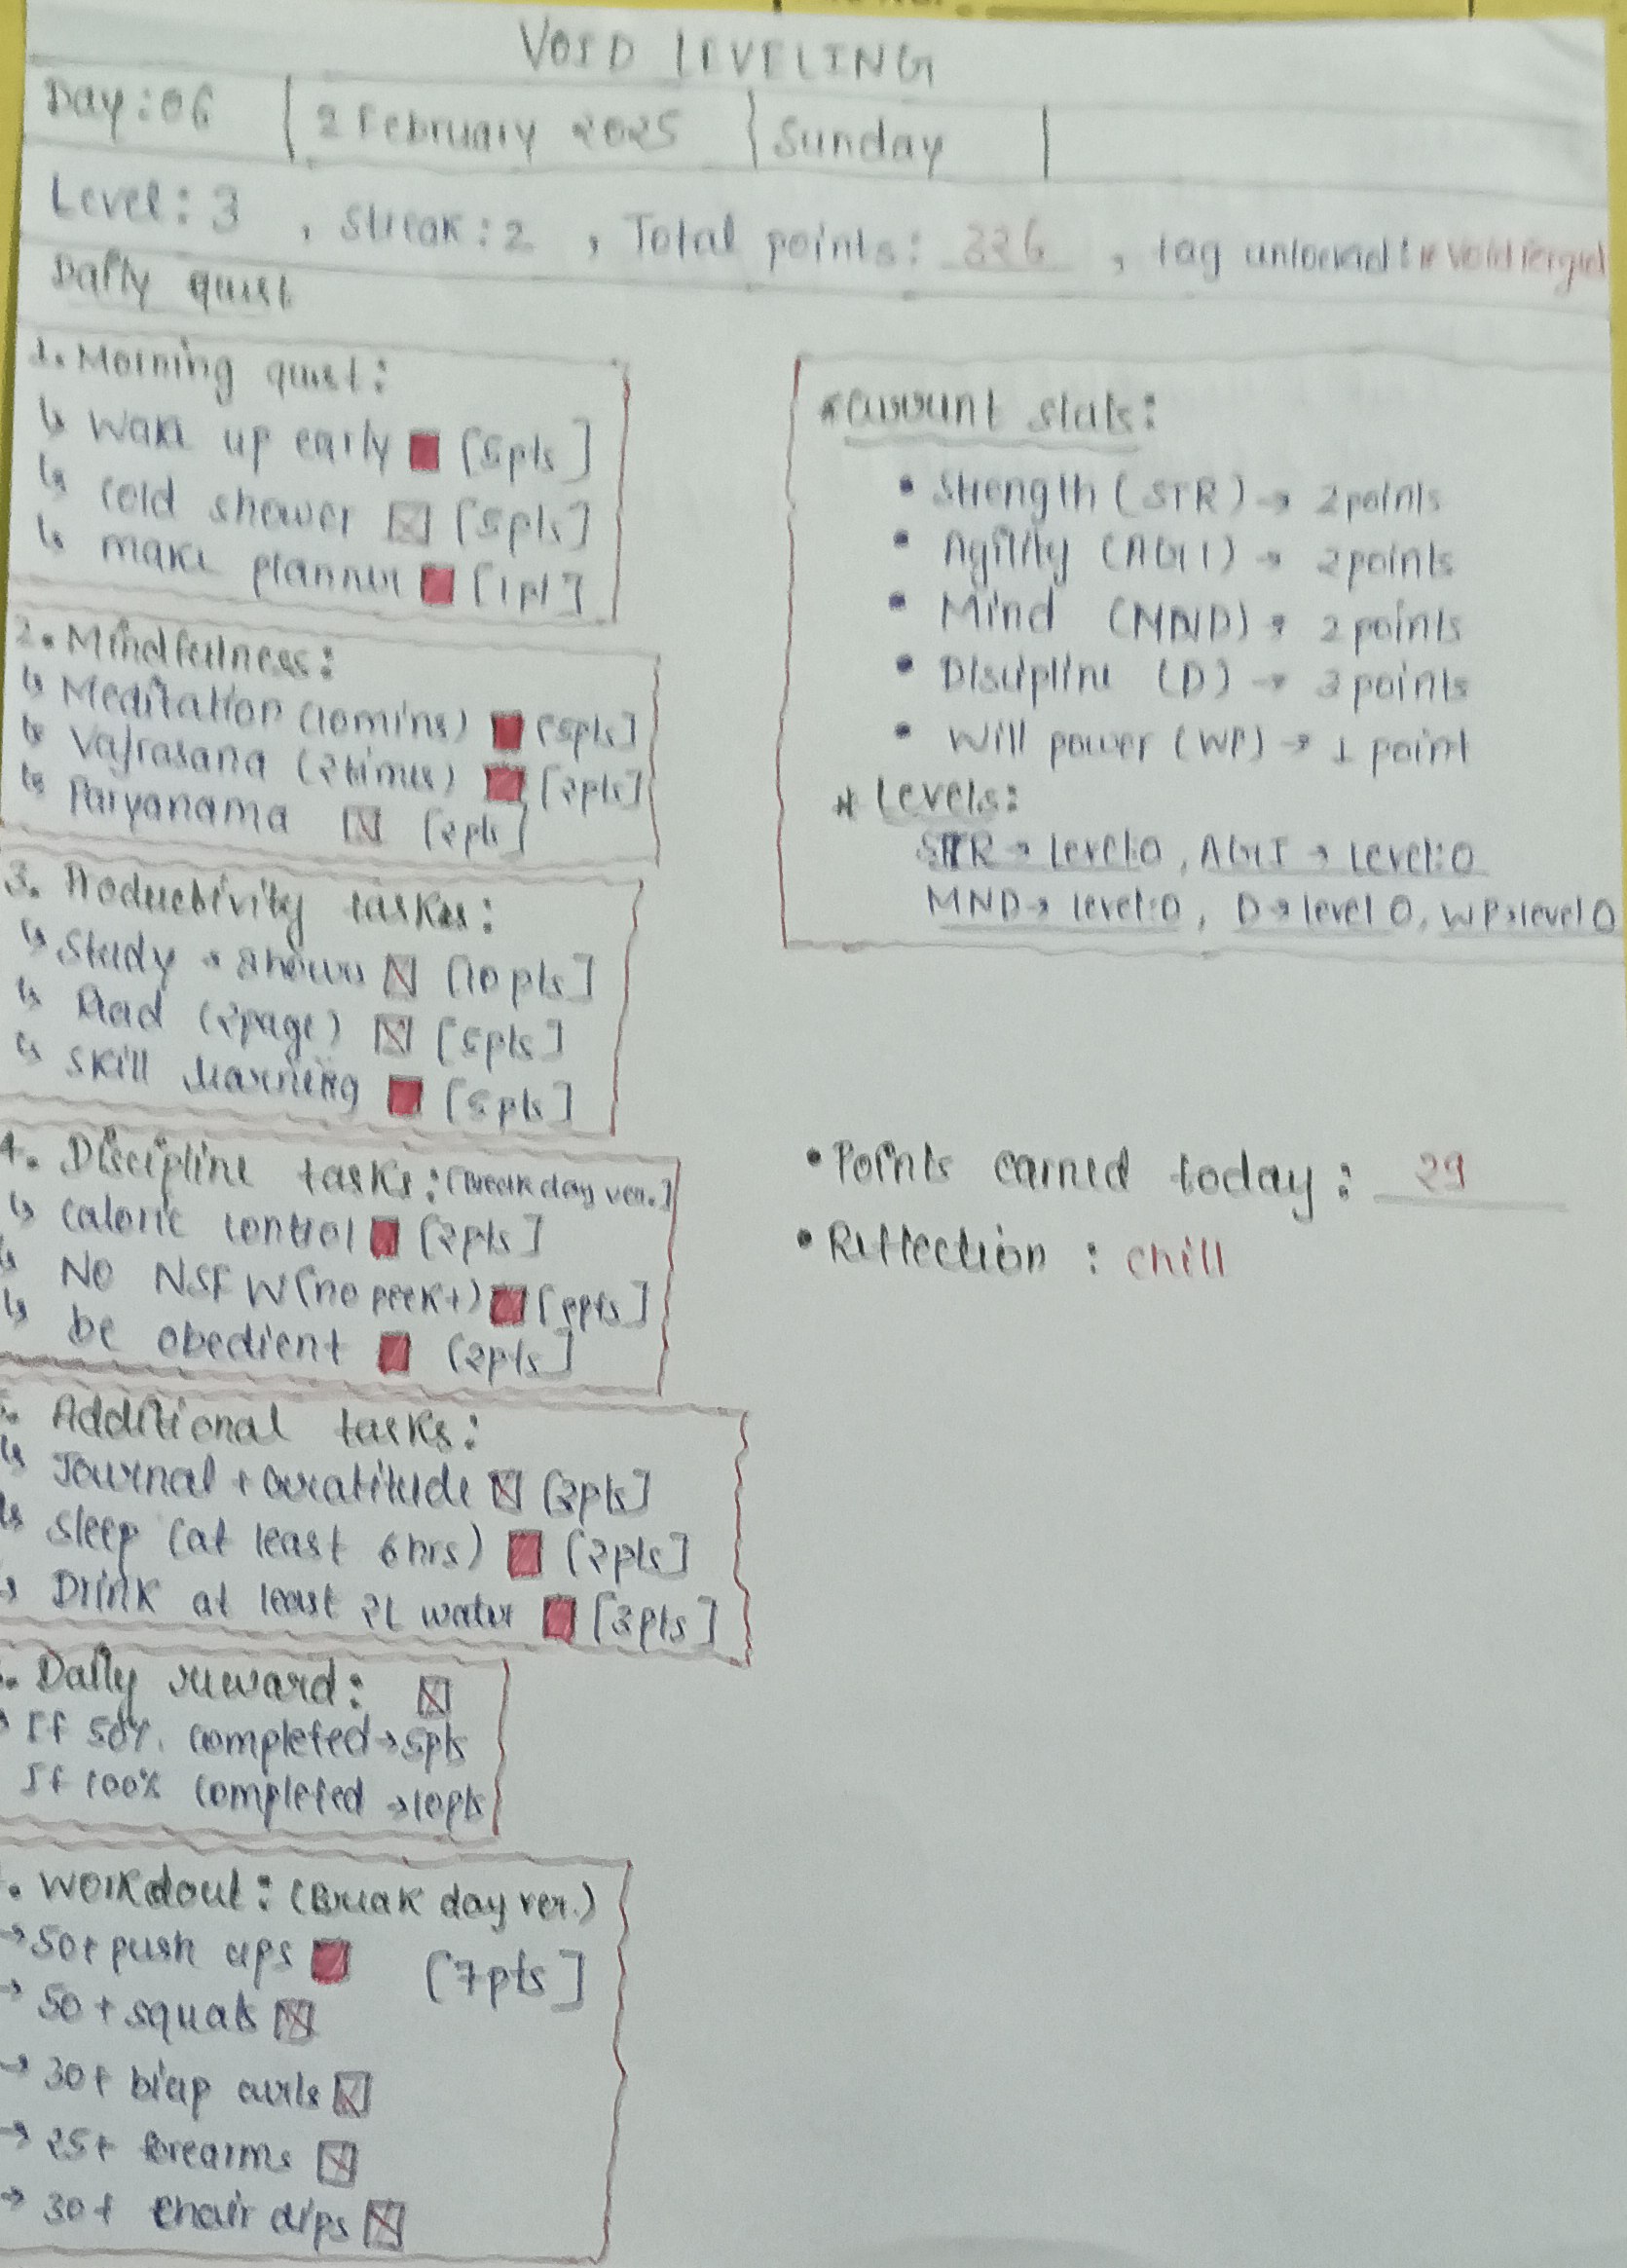 VOID LEVELING
Day:06 | 2 February 2025 | Sunday |
Level: 3 , Streak: 2 , Total points: 326 , tag unlocked: Void
Daily quest
1. Morning quest:
↳ Wake up early [5pts]
↳ cold shower [5pts]
↳ make planner [1pt]
2. Mindfulness:
↳ Meditation (10mins) [5pts]
↳ Vajrasana (2times) [2pts]
↳ Paryanama [2pts]
3. Productivity tasks:
↳ Study → 8 hours [10pts]
↳ Read (2page) [5pts]
↳ skill learning [5pts]
4. Discipline tasks: (Break day ver.)
↳ calorie control [2pts]
↳ NO NSFW (no peek+) [pts]
↳ be obedient [2pts]
5. Additional tasks:
↳ Journal + Gratitude [3pts]
↳ sleep (at least 6hrs) [2pts]
→ Drink at least 2L water [3pts]
. Daily reward:
If 50%. completed → 5pts
If 100% completed → 10pts
. Workdout: (Break day ver.)
→ 50+ push ups [7pts]
→ 50+ squats
→ 30+ bicep curls
→ 25+ forearms
→ 30+ chair dips
*current stats:
• Strength (STR) → 2 points
• Agility (AGI) → 2 points
• Mind (MND) → 2 points
• Discipline (D) → 3 points
• Will power (WP) → 1 point
* Levels:
STR → level:0, AGI → level:0
MND → level:0, D → level 0, WP → level 0
• Points earned today: 29
• Reflection: chill